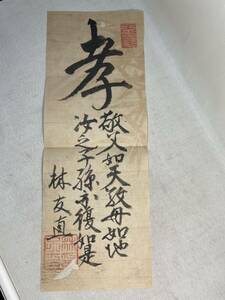 孝
敬父如天敬母如地
汝之子孫亦復如是
林友直